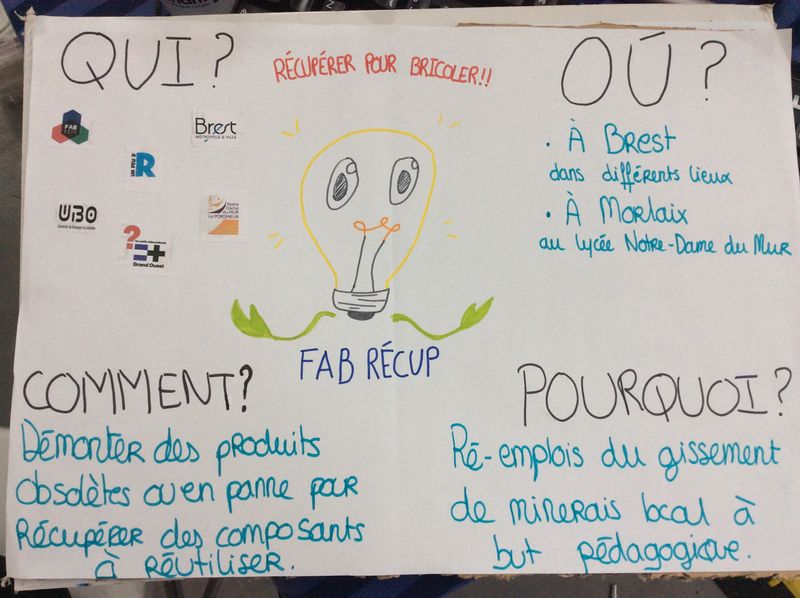 QUI?
RÉCUPÉRER POUR BRICOLER!!
OÚ?
FAB
CITY
Brest
MÉTROPOLE & VILLE
UN PEU D'
R
UBO
Notre
Dame
du MUR
Le PORSMEUR
?
E+
Grand Ouest
• À Brest
dans différents lieux
• À Morlaix
au lycée Notre-Dame du Mur
FAB RÉCUP
COMMENT?
Démonter des produits
obsolètes ou en panne pour
Récupérer des composants
à réutiliser.
POURQUOI?
Ré-emplois du gissement
de minerais local à
but pédagogique.